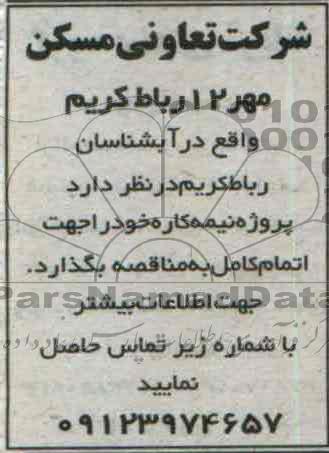 شرکت تعاونی مسکن
مهر ۱۲ رباط کریم
واقع در آبشناسان
رباط کریم در نظر دارد
پروژه نیمه کاره خود را جهت
اتمام کامل به مناقصه بگذارد.
جهت اطلاعات بیشتر
با شماره زیر تماس حاصل
نمایید
۰۹۱۲۳۹۷۴۶۵۷
ParsNamadData